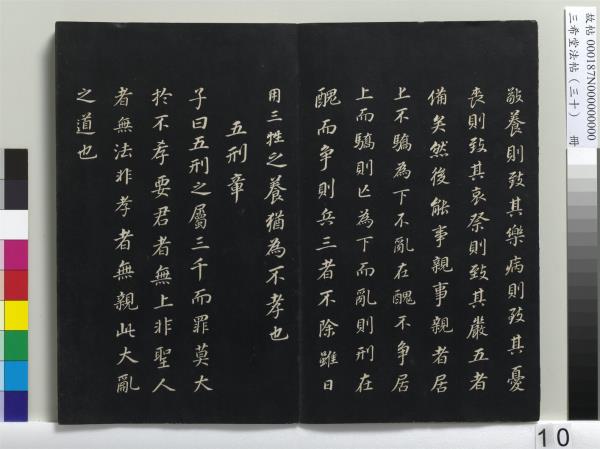 敬養則致其樂病則致其憂
喪則致其哀祭則致其嚴五者
備矣然後能事親事親者居
上不驕為下不亂在醜不争居
上而驕則亡為下而亂則刑在
醜而争則兵三者不除雖日
用三牲之養猶為不孝也
五刑章
子曰五刑之屬三千而罪莫大
於不孝要君者無上非聖人
者無法非孝者無親此大亂
之道也
故帖 000187N000000000
三希堂法帖（三十） 冊
10